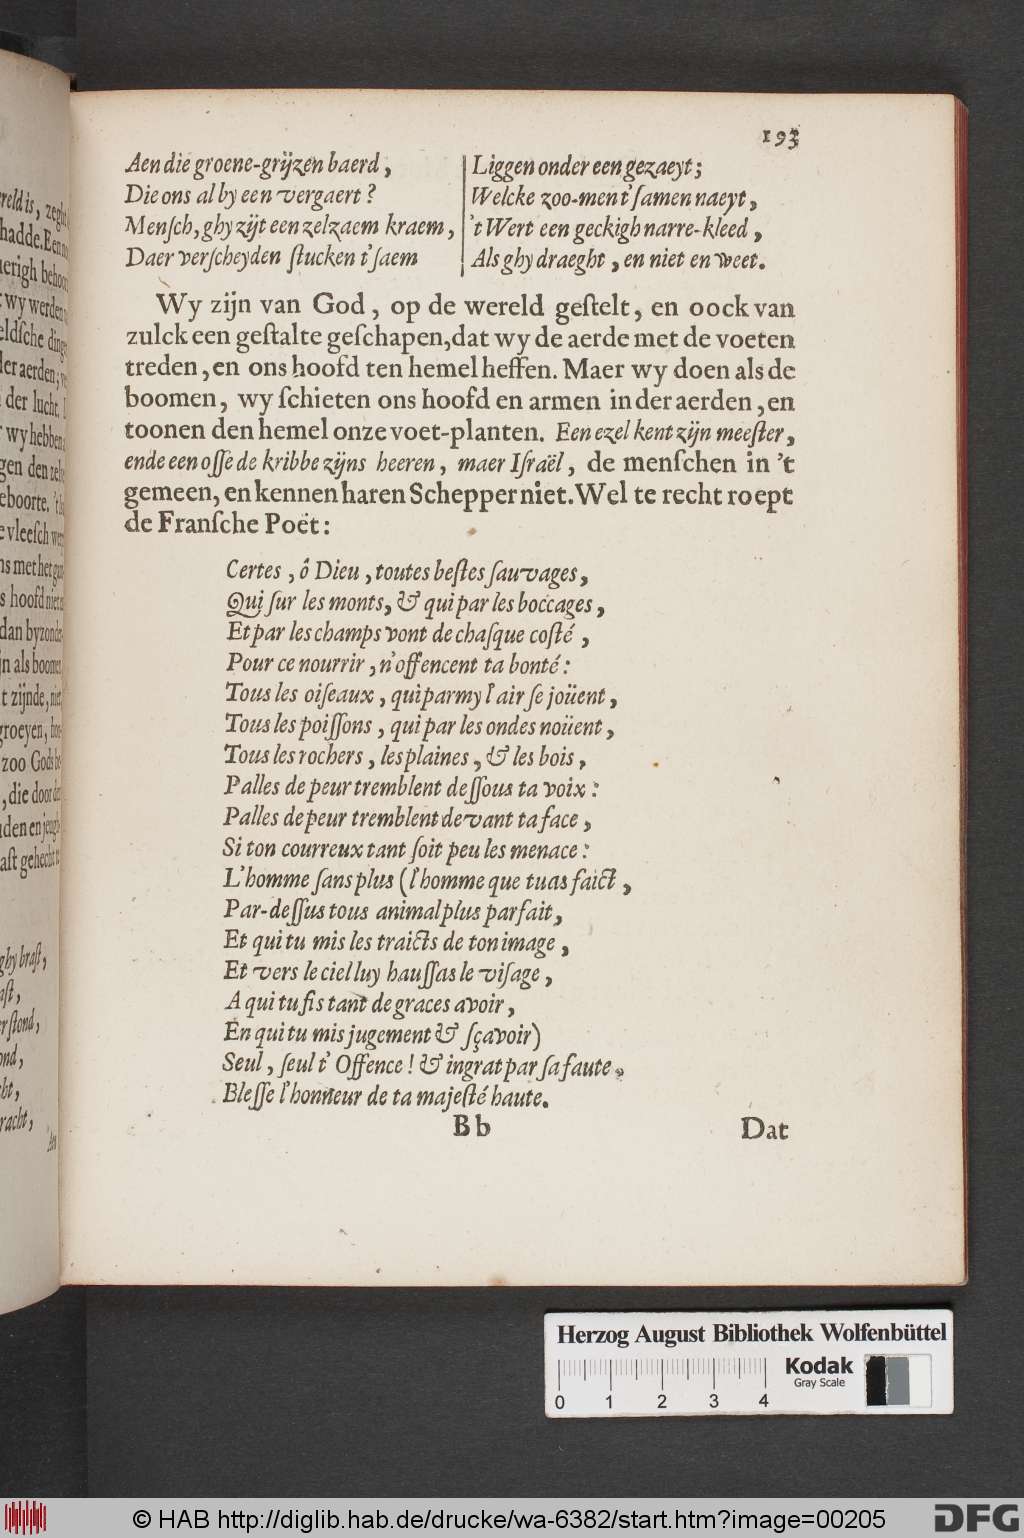 193
Aen die groene-grijzen baerd,
Die ons al by een vergaert?
Mensch, ghy zijt een zelzaem kraem,
Daer verscheyden stucken t'saem
Liggen onder een gezaeyt;
Welcke zoo-men t'samen naeyt,
't Wert een geckigh narre-kleed,
Als ghy draeght, en niet en weet.
Wy zijn van God, op de wereld gestelt, en oock van
zulck een gestalte geschapen, dat wy de aerde met de voeten
treden, en ons hoofd ten hemel heffen. Maer wy doen als de
boomen, wy schieten ons hoofd en armen in der aerden, en
toonen den hemel onze voet-planten. Een ezel kent zijn meester,
ende een osse de kribbe zijns heeren, maer Israël, de menschen in 't
gemeen, en kennen haren Schepper niet. Wel te recht roept
de Fransche Poët:
Certes, ô Dieu, toutes bestes sauvages,
Qui sur les monts, & qui par les boccages,
Et par les champs vont de chasque costé,
Pour ce nourrir, n'offencent ta bonté:
Tous les oiseaux, qui parmy l'air se joüent,
Tous les poissons, qui par les ondes noüent,
Tous les rochers, les plaines, & les bois,
Palles de peur tremblent dessous ta voix:
Palles de peur tremblent devant ta face,
Si ton courreux tant soit peu les menace:
L'homme sans plus (l'homme que tu as faict,
Par-dessus tous animal plus parfait,
Et qui tu mis les traicts de ton image,
Et vers le ciel luy haussas le visage,
A qui tu fis tant de graces avoir,
En qui tu mis jugement & sçavoir)
Seul, seul t'Offence! & ingrat par sa faute,
Blesse l'honneur de ta majesté haute.
Bb
Dat
Herzog August Bibliothek Wolfenbüttel
0 1 2 3 4
Kodak
Gray Scale
© HAB http://diglib.hab.de/drucke/wa-6382/start.htm?image=00205
DFG